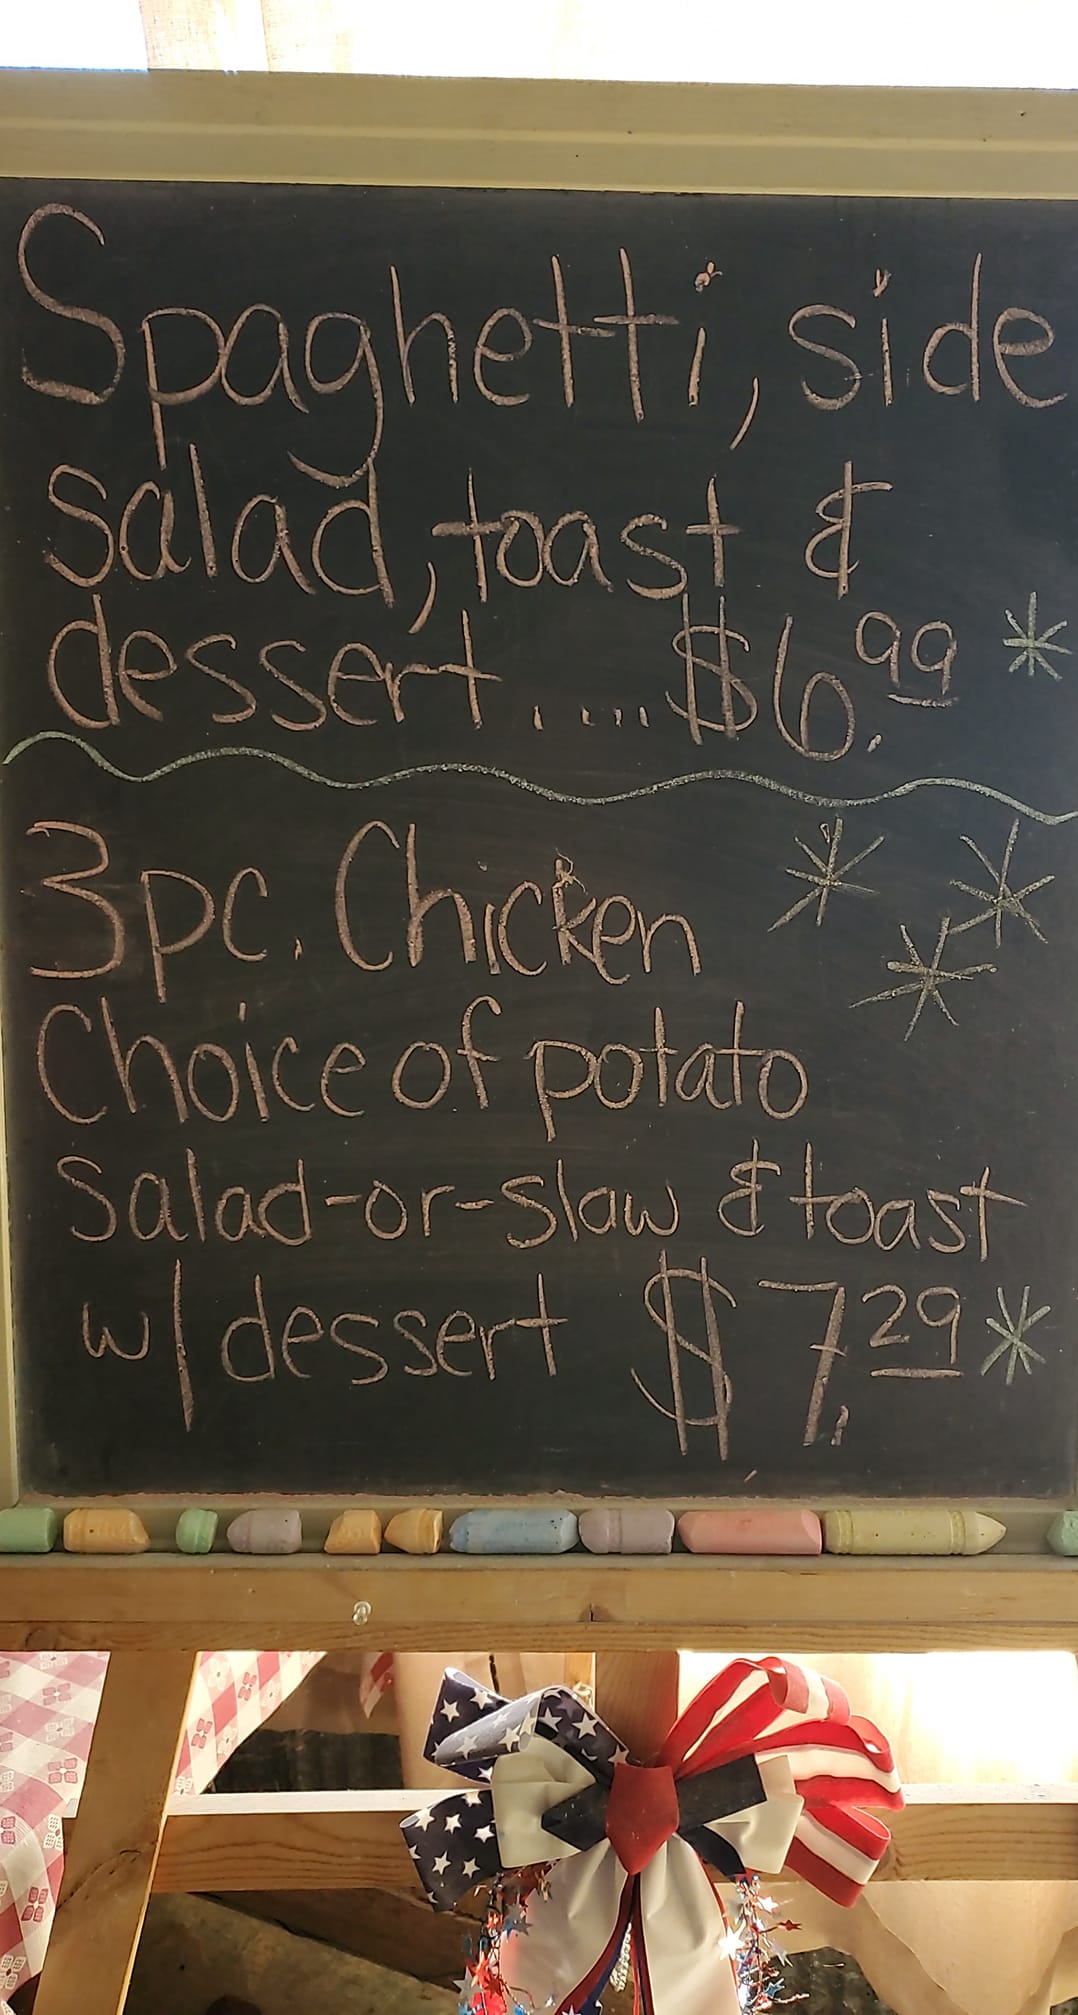 Spaghetti, side
salad, toast &
dessert.....$6.99
3pc. Chicken
Choice of potato
Salad-or-slaw & toast
w/dessert $7.29